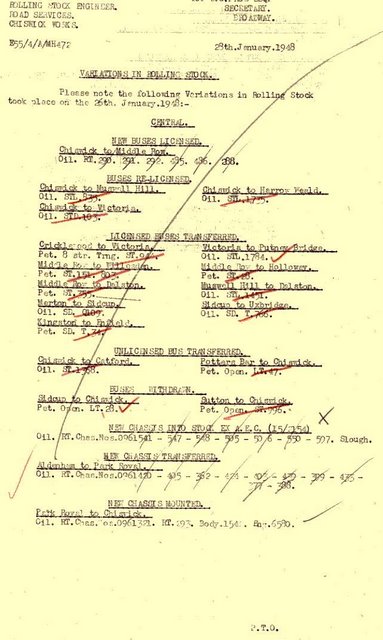 ROLLING STOCK ENGINEER.
ROAD SERVICES.
CHISWICK WORKS.
SECRETARY.
BROADWAY.
E55/4/A/MH472
28th.January.1948
VARIATIONS IN ROLLING STOCK.
Please note the following Variations in Rolling Stock
took place on the 26th. January.1948:-
CENTRAL.
NEW BUSES LICENSED.
Chiswick to Middle Row.
Oil. RT. 290. 291. 292. 485. 486. 288.
BUSES RE-LICENSED.
Chiswick to Muswell Hill.
Oil. STL.
Chiswick to Victoria.
Oil. STD.103.
Chiswick to Harrow Weald.
Oil. STL.1735.
LICENSED BUSES TRANSFERRED.
Cricklewood to Victoria.
Pet. 8 str. Trng. ST.
Middle Row to
Pet. ST.
Middle Row to Dalston.
Pet. ST.
Merton to Sidcup.
Oil. SD.
Kingston to Enfield.
Pet. SD. T.
Victoria to Putney Bridge.
Oil. STL.1784.
Middle Row to Holloway.
Pet. ST.
Muswell Hill to Dalston.
Oil. STL.1451.
Sidcup to Uxbridge.
Oil. SD. T.766.
UNLICENSED BUS TRANSFERRED.
Chiswick to Catford.
Oil.
Potters Bar to Chiswick.
Pet. Open. LT.47.
BUSES WITHDRAWN.
Sidcup to Chiswick.
Pet. Open. LT.28.
Sutton to Chiswick.
Pet. Open. ST.796.
NEW CHASSIS INTO STOCK EX A.E.C. (15/2154)
Oil. RT.Chas.Nos.0961541 - 547 - 548 - 595 - 506 - 550 - 597. Slough.
NEW CHASSIS TRANSFERRED.
Aldenham to Park Royal.
Oil. RT.Chas.Nos.0961420 - 405 - 382 - 424 - 403 - 420 - 399 - 435 -
377 - 388.
NEW CHASSIS MOUNTED.
Park Royal to Chiswick.
Oil. RT.Chas.Nos.0961321. RT.293. Body.1542. Eng.6580.
P.T.O.